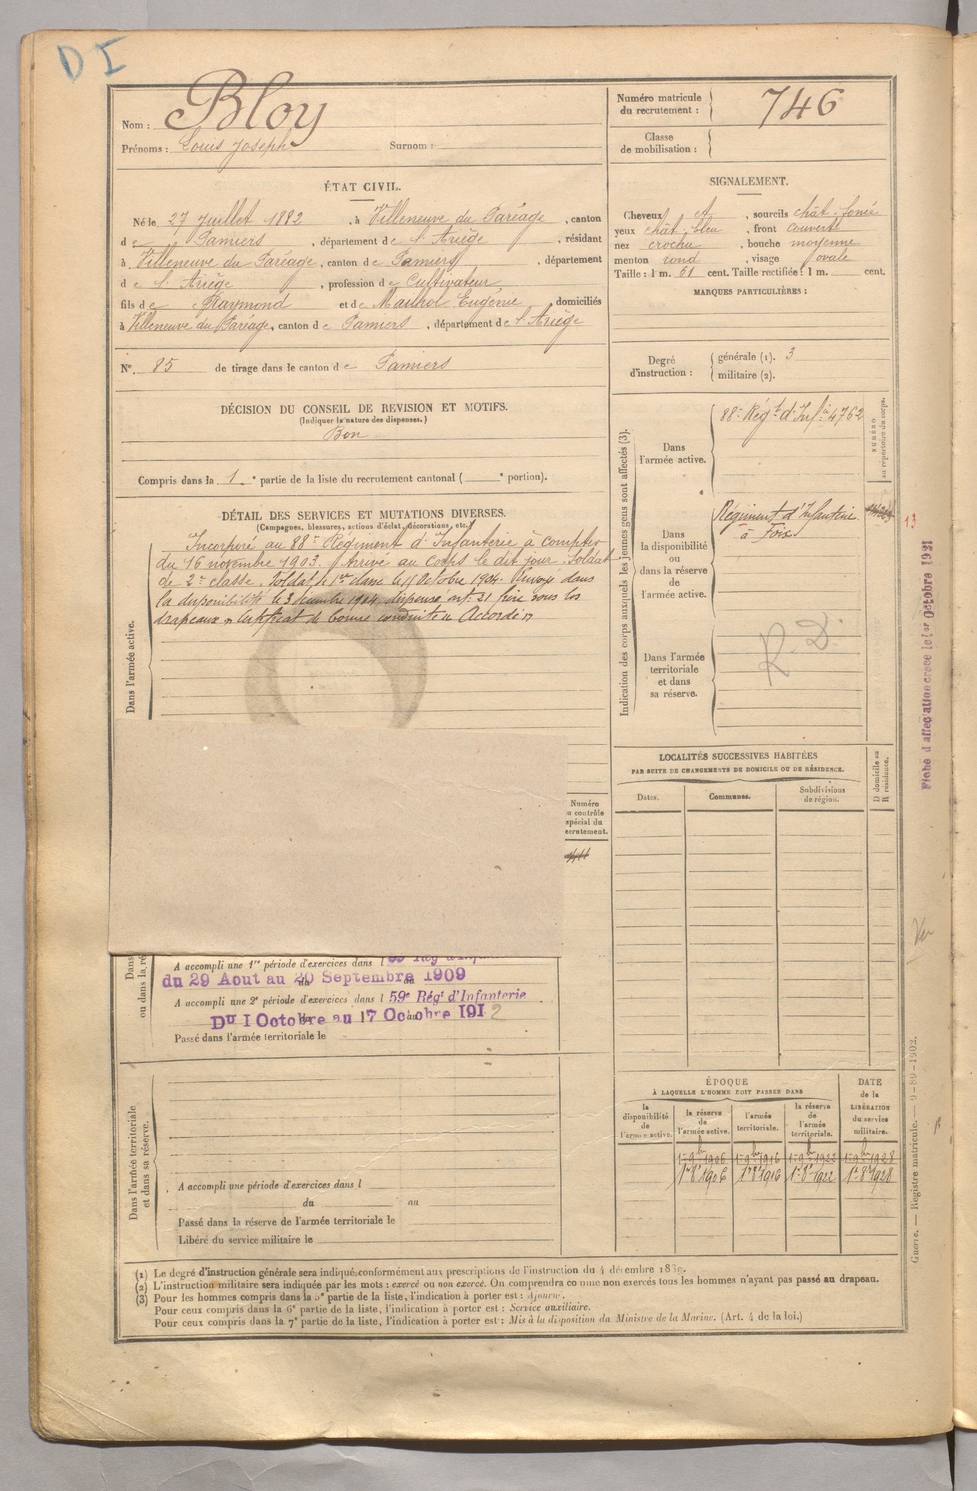 D I
Nom : Bloy
Prénoms : Louis Joseph Surnom :
ÉTAT CIVIL.
Né le 27 Juillet 1882 , à Villeneuve du Paréage , canton
de Pamiers , département de l'Ariège , résidant
à Villeneuve du Paréage , canton de Pamiers , département
de l'Ariège , profession de Cultivateur
fils de Raymond et de Maurhol Eugénie domiciliés
à Villeneuve du Paréage, canton de Pamiers , département de l'Ariège
N° 85 de tirage dans le canton de Pamiers
DÉCISION DU CONSEIL DE REVISION ET MOTIFS.
(Indiquer la nature des dispenses.)
Bon
Compris dans la 1e partie de la liste du recrutement cantonal ( e portion).
DÉTAIL DES SERVICES ET MUTATIONS DIVERSES.
(Campagnes, blessures, actions d'éclat, décorations, etc.)
Dans l'armée active.
Incorporé au 88e Régiment d'Infanterie à compter
du 16 novembre 1903. Arrivé au Corps le dit jour. Soldat
de 2e classe. Soldat de 1re classe le 11 Octobre 1904. Renvoyé dans
la disponibilité le 3 décembre 1904. dispensé art. 31. fixé sous les
drapeaux Certificat de bonne conduite " Accordé "
Numéro
au contrôle
spécial du
recrutement.
Dans
ou dans la ré
A accompli une 1re période d'exercices dans l
du 29 Aout au 20 Septembre 1909
A accompli une 2e période d'exercices dans l 59e Régt d'Infanterie
Du 1 Octobre au 17 Octobre 1912
Passé dans l'armée territoriale le
Dans l'armée territoriale
et dans sa réserve.
A accompli une période d'exercices dans l
du au
Passé dans la réserve de l'armée territoriale le
Libéré du service militaire le
Numéro matricule
du recrutement : 746
Classe
de mobilisation :
SIGNALEMENT.
Cheveux et , sourcils chât. foncé
yeux chât. bleu , front couvert
nez crochu , bouche moyenne
menton rond , visage ovale
Taille : 1 m. 61 cent. Taille rectifiée : 1 m. cent.
MARQUES PARTICULIÈRES :
Degré
d'instruction :
générale (1). 3
militaire (2).
Indication des corps auxquels les jeunes gens sont affectés (3).
NUMÉRO
au répertoire du corps.
Dans
l'armée active.
88e Régt d'Infie 4762
Dans
la disponibilité
ou
dans la réserve
de
l'armée active.
Régiment d'Infanterie
à Foix
13
Dans l'armée
territoriale
et dans
sa réserve.
R. D.
Fiche d'affectation créée le 1er Octobre 1921
LOCALITÉS SUCCESSIVES HABITÉES
PAR SUITE DE CHANGEMENTS DE DOMICILE OU DE RÉSIDENCE.
Dates.
Communes.
Subdivisions
de région.
D domicile ou
R résidence.
ÉPOQUE
À LAQUELLE L'HOMME DOIT PASSER DANS
DATE
de la
LIBÉRATION
du service
militaire.
la
disponibilité
de
l'armée active.
la réserve
de
l'armée active.
l'armée
territoriale.
la réserve
de
l'armée
territoriale.
1er 9bre 1906 1er 9bre 1916 1er 9bre 1922 1er 9bre 1928
1er 8bre 1906 1er 8bre 1916 1er 8bre 1922 1er 8bre 1928
Guerre. — Registre matricule. — 9-89-1902.
(1) Le degré d'instruction générale sera indiqué conformément aux prescriptions de l'instruction du 4 décembre 1889.
(2) L'instruction militaire sera indiquée par les mots : exercé ou non exercé. On comprendra comme non exercés tous les hommes n'ayant pas passé au drapeau.
(3) Pour les hommes compris dans la 5e partie de la liste, l'indication à porter est : Ajourné.
Pour ceux compris dans la 6e partie de la liste, l'indication à porter est : Service auxiliaire.
Pour ceux compris dans la 7e partie de la liste, l'indication à porter est : Mis à la disposition du Ministre de la Marine. (Art. 4 de la loi.)